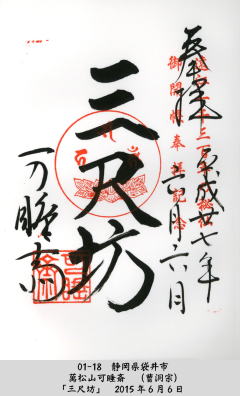 奉拝
平成廿七年
六月六日
三尺坊
可睡斎
01-18 静岡県袋井市
萬松山可睡斎 (曹洞宗)
「三尺坊」 2015年6月6日